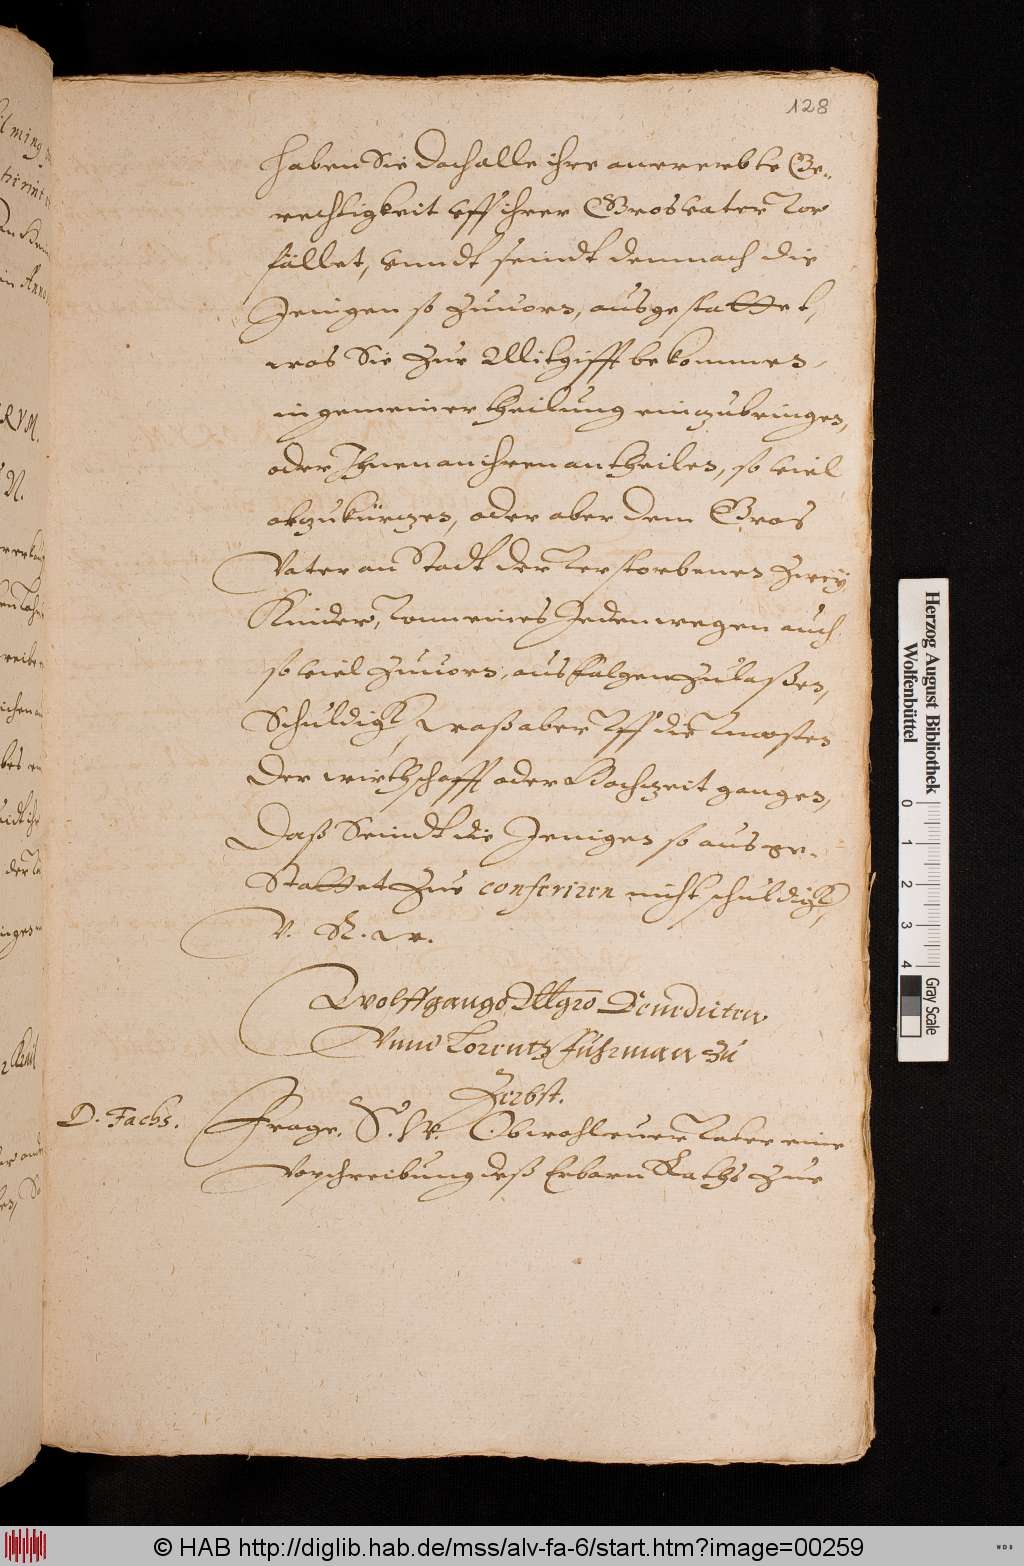 128
haben Sie doch alle ihre anererbte Ge-
rechtigkeit uff ihren Grosvater ver
fället, unndt seindt demnach die
Jenigen so zuuorn, ausgestattet,
was Sie zur Mitgifft bekommen,
in gemeiner theilung einzubringen,
oder Ihnen an ihren antheilen, so viel
abzukürtzen, oder aber dem Gros
Vater an Stadt der verstorbenen zwey
Kinder, von eines Jeden wegen auch
so viel zuuorn, aus folgen zu laßen,
Schuldigk, Waß aber uff die unkosten
der wirthschafft oder Hochzeit gangen,
Daß Seindt die Jenigen so ausge-
Stattet zur conferiren nicht schuldigk,
V. R. W.
Wolffgango Mgrō Benedicten
Vnnd Lorentz Fuhrman zu
Zerbst.
D. Fachs.
Frage. S. W. Ob wohl euer Vater eine
Vorschreibung deß Erbarn Raths zur
Herzog August Bibliothek
Wolfenbüttel
0 1 2 3 4
Gray Scale
© HAB http://diglib.hab.de/mss/alv-fa-6/start.htm?image=00259